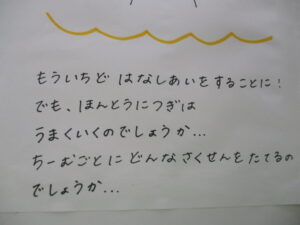 もういちど はなしあいをすることに！
でも、ほんとうにつぎは
うまくいくのでしょうか...
ちーむごとに どんなさくせんをたてるの
でしょうか...